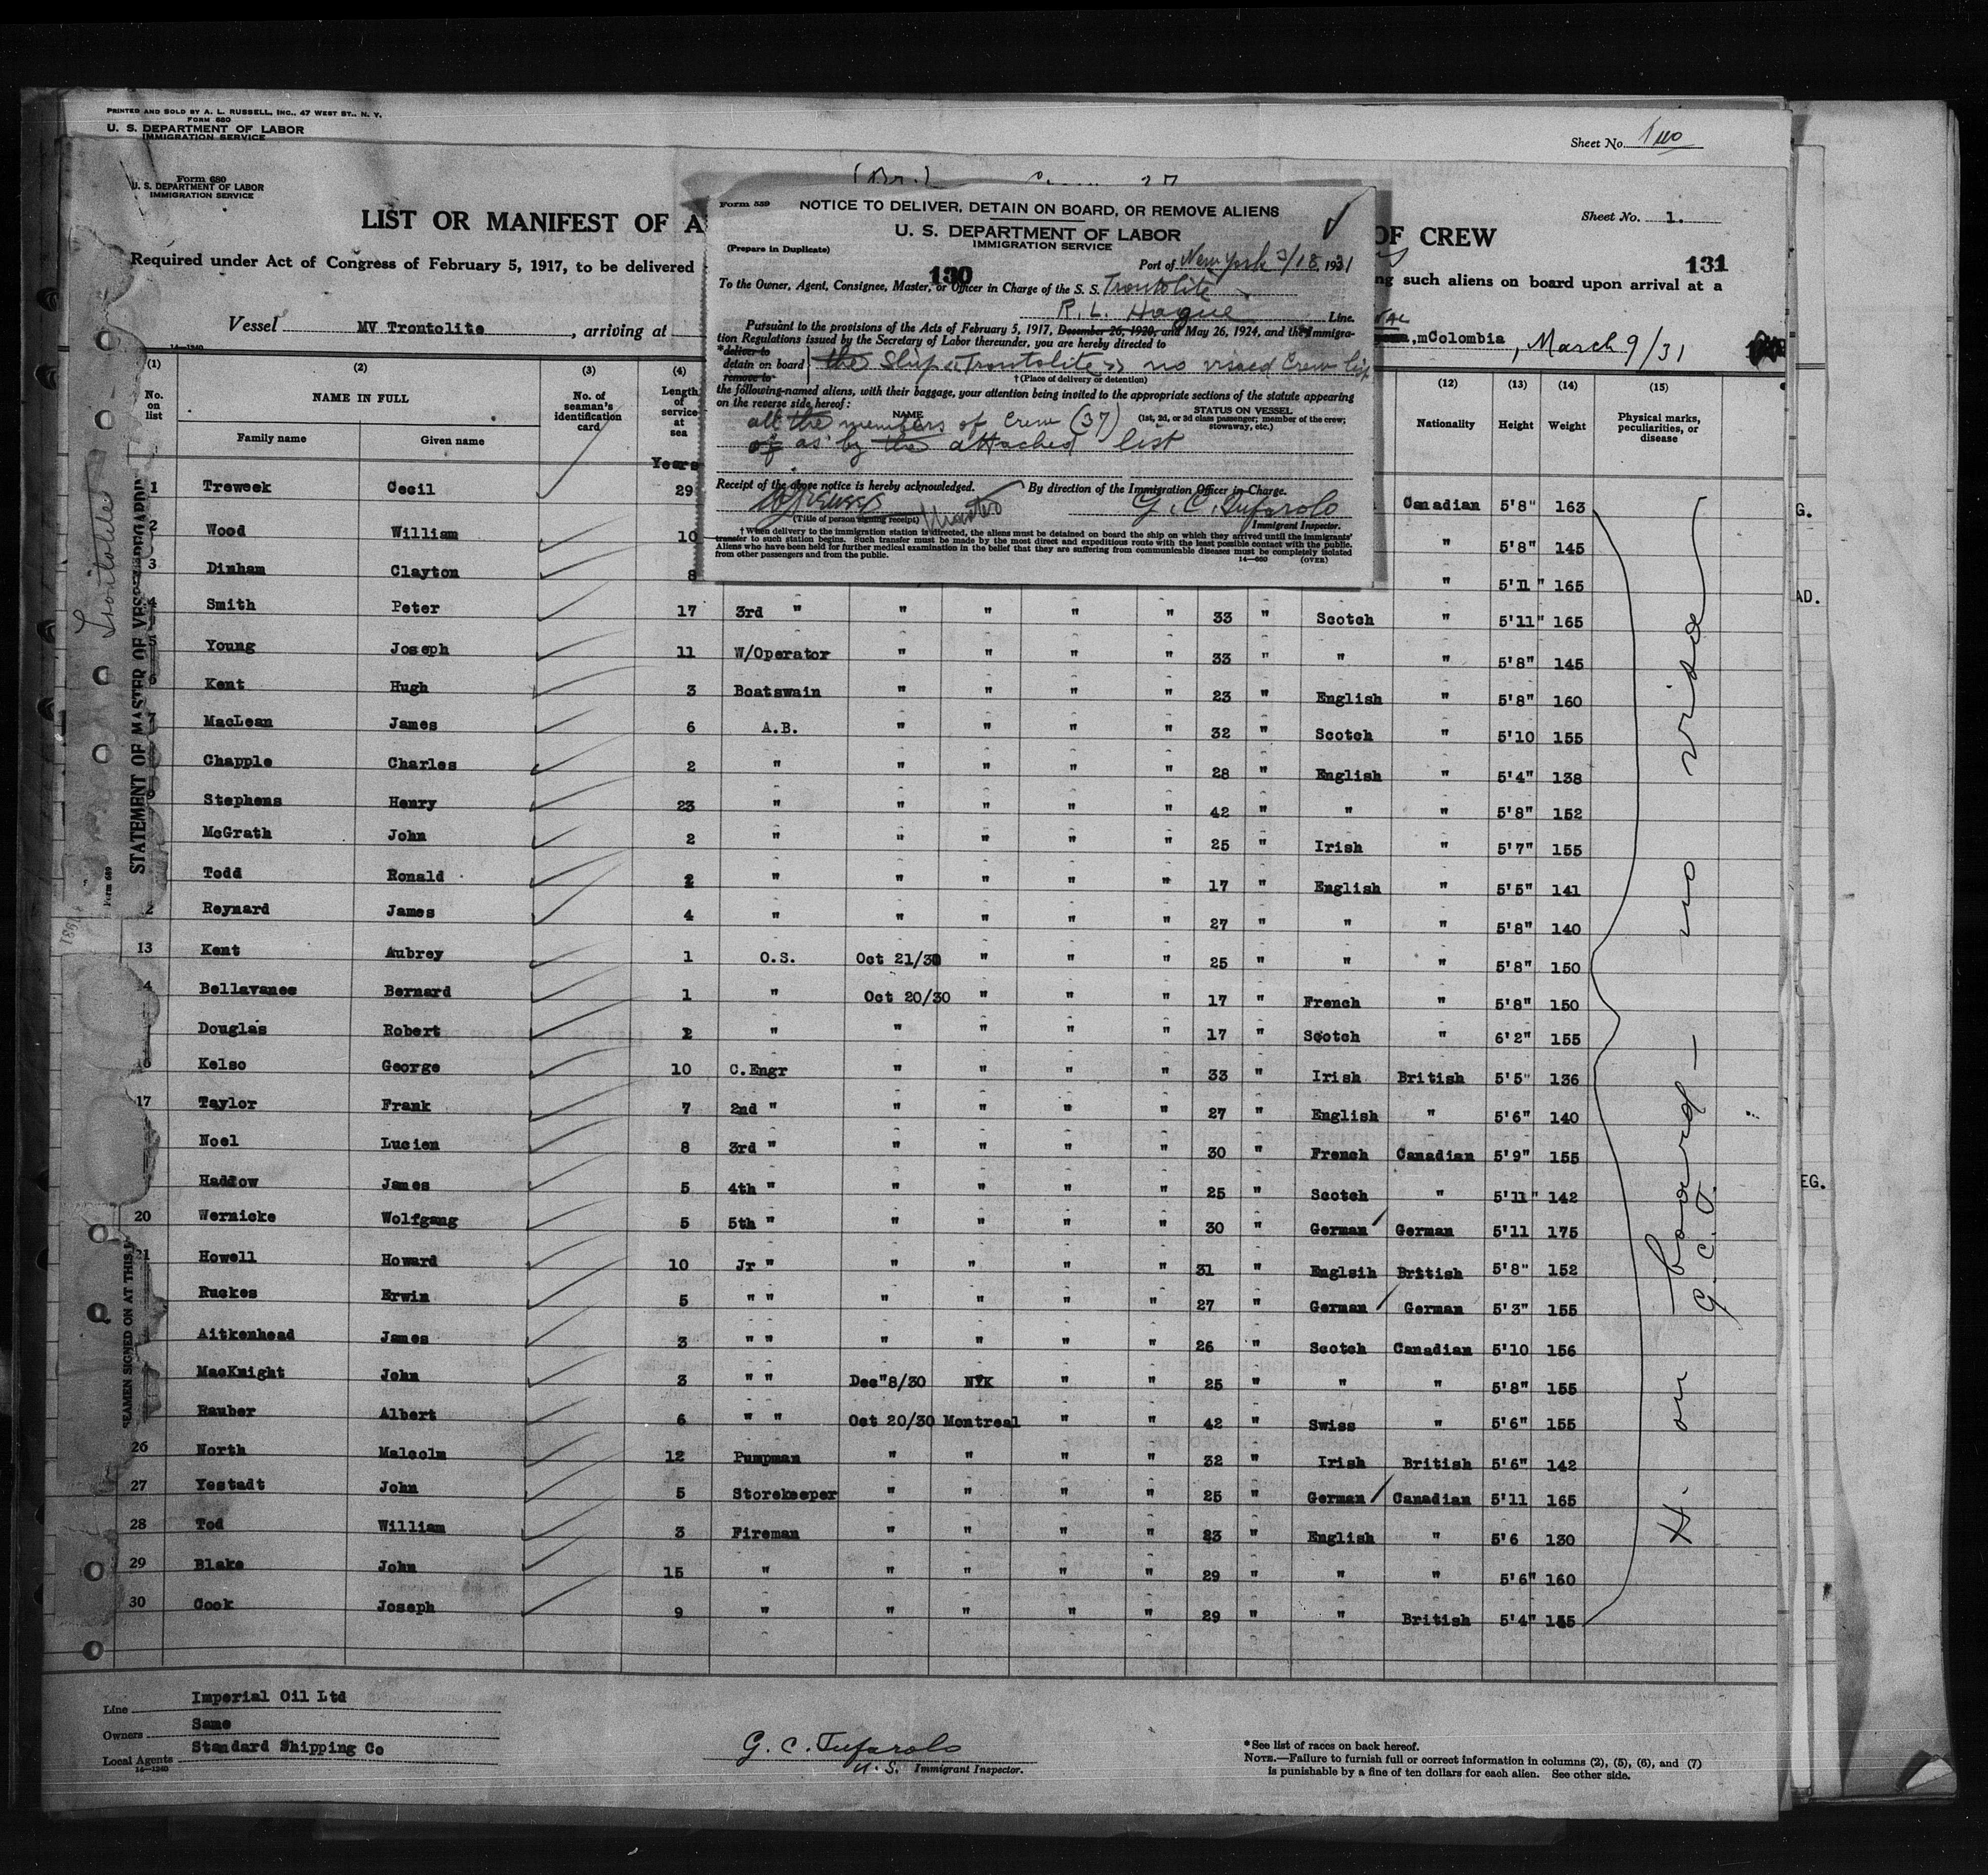 PRINTED AND SOLD BY A. L. RUSSELL, INC., 47 WEST ST., N. Y.
FORM 680
U. S. DEPARTMENT OF LABOR
IMMIGRATION SERVICE
Sheet No.
Form 680
U. S. DEPARTMENT OF LABOR
IMMIGRATION SERVICE
Sheet No. 1.
LIST OR MANIFEST OF A
OF CREW
131
Required under Act of Congress of February 5, 1917, to be delivered
ng such aliens on board upon arrival at a
Vessel MV Trontolite, arriving at
, mColombia, March 9/31
14—1240
Form 559
NOTICE TO DELIVER, DETAIN ON BOARD, OR REMOVE ALIENS
U. S. DEPARTMENT OF LABOR
IMMIGRATION SERVICE
(Prepare in Duplicate)
130
Port of New York 3/18, 1931
To the Owner, Agent, Consignee, Master, or Officer in Charge of the S. S. Trontolite
R. L. Hague Line.
Pursuant to the provisions of the Acts of February 5, 1917, December 26, 1920, and May 26, 1924, and the Immigra-
tion Regulations issued by the Secretary of Labor thereunder, you are hereby directed to
*deliver to
detain on board the Ship "Trontolite" no visaed Crew list
remove to
† (Place of delivery or detention)
the following-named aliens, with their baggage, your attention being invited to the appropriate sections of the statute appearing
on the reverse side hereof:
NAME
STATUS ON VESSEL
(1st, 2d, or 3d class passenger; member of the crew;
stowaway, etc.)
all the members of Crew (37)
of as by the attached list
Receipt of the above notice is hereby acknowledged.
By direction of the Immigration Officer in Charge.
Master
G. C. Tufarolo
(Title of person signing receipt)
Immigrant Inspector.
† When delivery to the immigration station is directed, the aliens must be detained on board the ship on which they arrived until the immigrants'
transfer to such station begins. Such transfer must be made by the most direct and expeditious route with the least possible contact with the public.
Aliens who have been held for further medical examination in the belief that they are suffering from communicable diseases must be completely isolated
from other passengers and from the public.
14—680 (OVER)
(1) (2) (3) (4) (12) (13) (14) (15)
No. on list
NAME IN FULL
Family name Given name
No. of seaman's identification card
Length of service at sea
Years
Nationality Height Weight
Physical marks, peculiarities, or disease
1 Treweek Cecil 29 Canadian 5'8" 163
2 Wood William 10 " 5'8" 145
3 Dinham Clayton 8 " 5'11" 165
4 Smith Peter 17 3rd " " " " " 33 " Scotch " 5'11" 165
5 Young Joseph 11 W/Operator " " " " 33 " " " 5'8" 145
6 Kent Hugh 3 Boatswain " " " " 23 " English " 5'8" 160
7 MacLean James 6 A.B. " " " " 32 " Scotch " 5'10 155
Chapple Charles 2 " " " " " 28 " English " 5'4" 138
9 Stephens Henry 23 " " " " " 42 " " " 5'8" 152
McGrath John 2 " " " " " 25 " Irish " 5'7" 155
Todd Ronald 2 " " " " " 17 " English " 5'5" 141
2 Reynard James 4 " " " " " 27 " " " 5'8" 140
13 Kent Aubrey 1 O.S. Oct 21/30 " " " 25 " " " 5'8" 150
4 Bellavanes Bernard 1 " Oct 20/30 " " " 17 " French " 5'8" 150
Douglas Robert 2 " " " " " 17 " Scotch " 6'2" 155
16 Kelso George 10 C.Engr " " " " 33 " Irish British 5'5" 136
17 Taylor Frank 7 2nd " " " " " 27 " English " 5'6" 140
Noel Lucien 8 3rd " " " " " 30 " French Canadian 5'9" 155
Haddow James 5 4th " " " " " 25 " Scotch " 5'11" 142
20 Wernicke Wolfgang 5 5th " " " " " 30 " German German 5'11 175
21 Howell Howard 10 Jr " " " " " 31 " Englsih British 5'8" 152
Ruckes Erwin 5 " " " " " " 27 " German German 5'3" 155
Aitkenhead James 3 " " " " " " 26 " Scotch Canadian 5'10 156
MacKnight John 3 " " Dec"8/30 NYK " " 25 " " " 5'8" 155
Rauber Albert 6 " " Oct 20/30 Montreal " " 42 " Swiss " 5'6" 155
26 North Malcolm 12 Pumpman " " " " 32 " Irish British 5'6" 142
27 Yestadt John 5 Storekeeper " " " " 25 " German Canadian 5'11 165
28 Tod William 3 Fireman " " " " 23 " English " 5'6 130
29 Blake John 15 " " " " " 29 " " " 5'6" 160
30 Cook Joseph 9 " " " " " 29 " " British 5'4" 155
H. on board — no visae
G. C. T.
Trontolite
STATEMENT OF MASTER OF VESS
Form 689
1931
SEAMEN SIGNED ON AT THIS
G.
AD.
EG.
Line Imperial Oil Ltd
Owners Same
Local Agents Standard Shipping Co
14—1240
G. C. Tufarolo
U. S. Immigrant Inspector.
* See list of races on back hereof.
NOTE.—Failure to furnish full or correct information in columns (2), (5), (6), and (7)
is punishable by a fine of ten dollars for each alien. See other side.